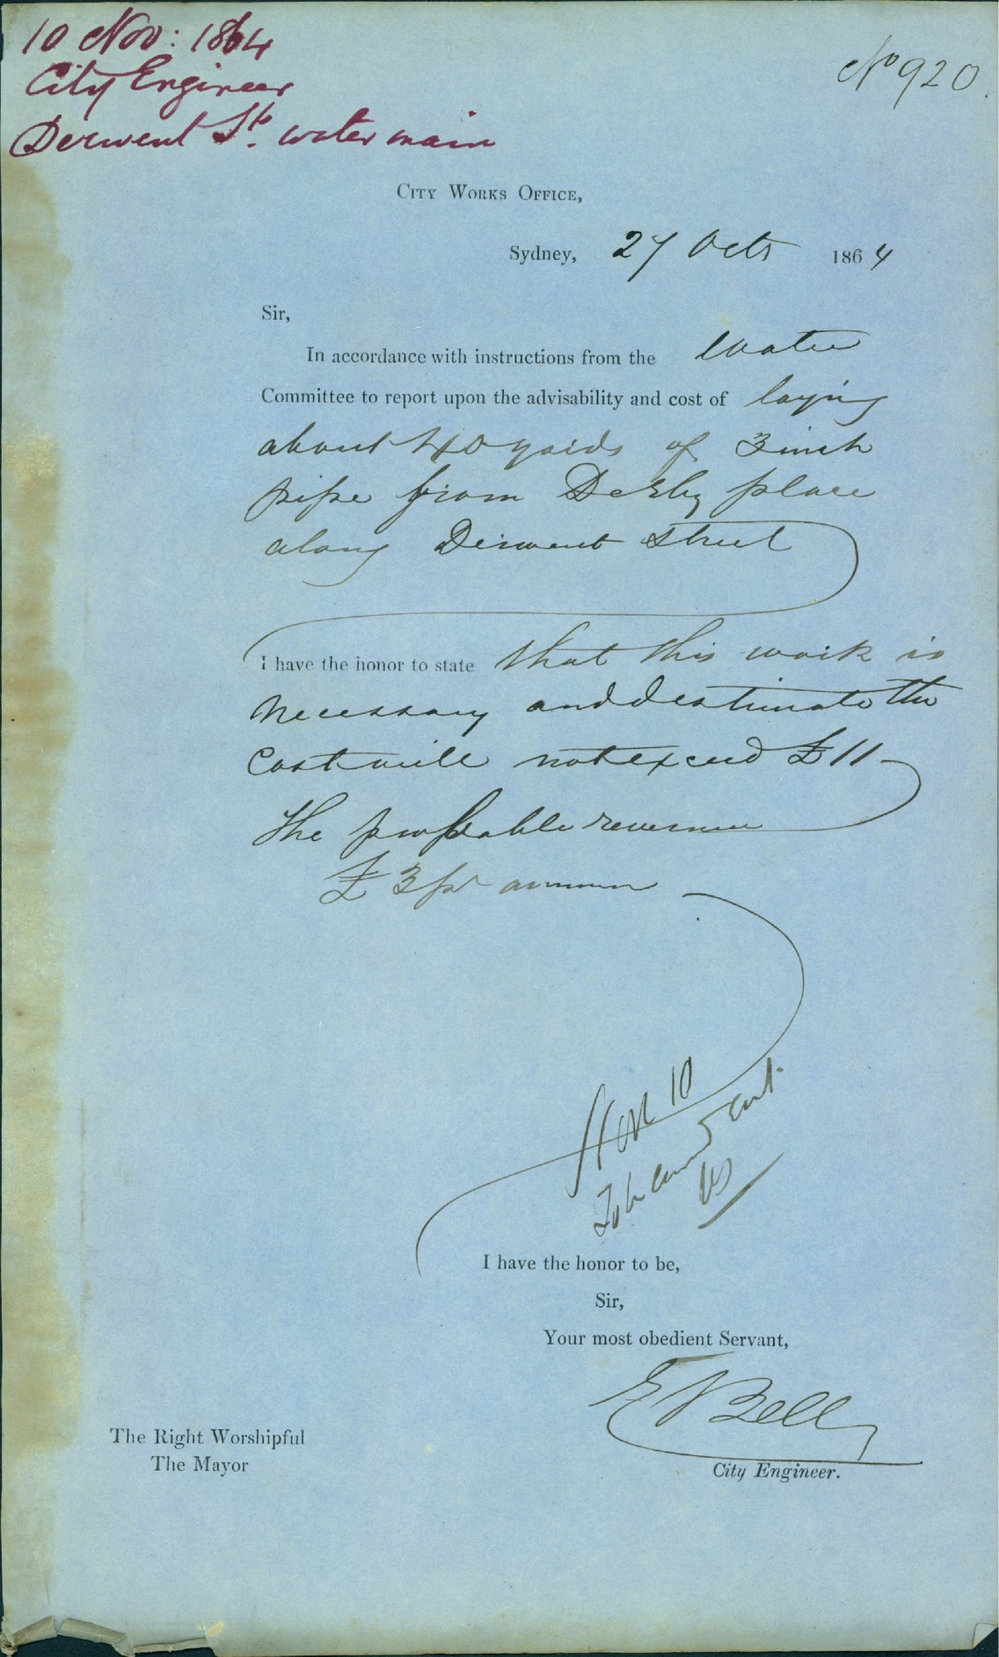 10 Nov: 1864
City Engineer
Derwent St. water main
No 920.
City Works Office,
Sydney, 27 Octr 1864
Sir,
In accordance with instructions from the Water
Committee to report upon the advisability and cost of laying
about 40 yards of 3 inch
pipe from Derby place
along Derwent Street
I have the honor to state that this work is
necessary and I estimate the
cost will not exceed £11-
The probable revenue
£3 pr annum
Nov 10
I have the honor to be,
Sir,
Your most obedient Servant,
E Bell
City Engineer.
The Right Worshipful
The Mayor